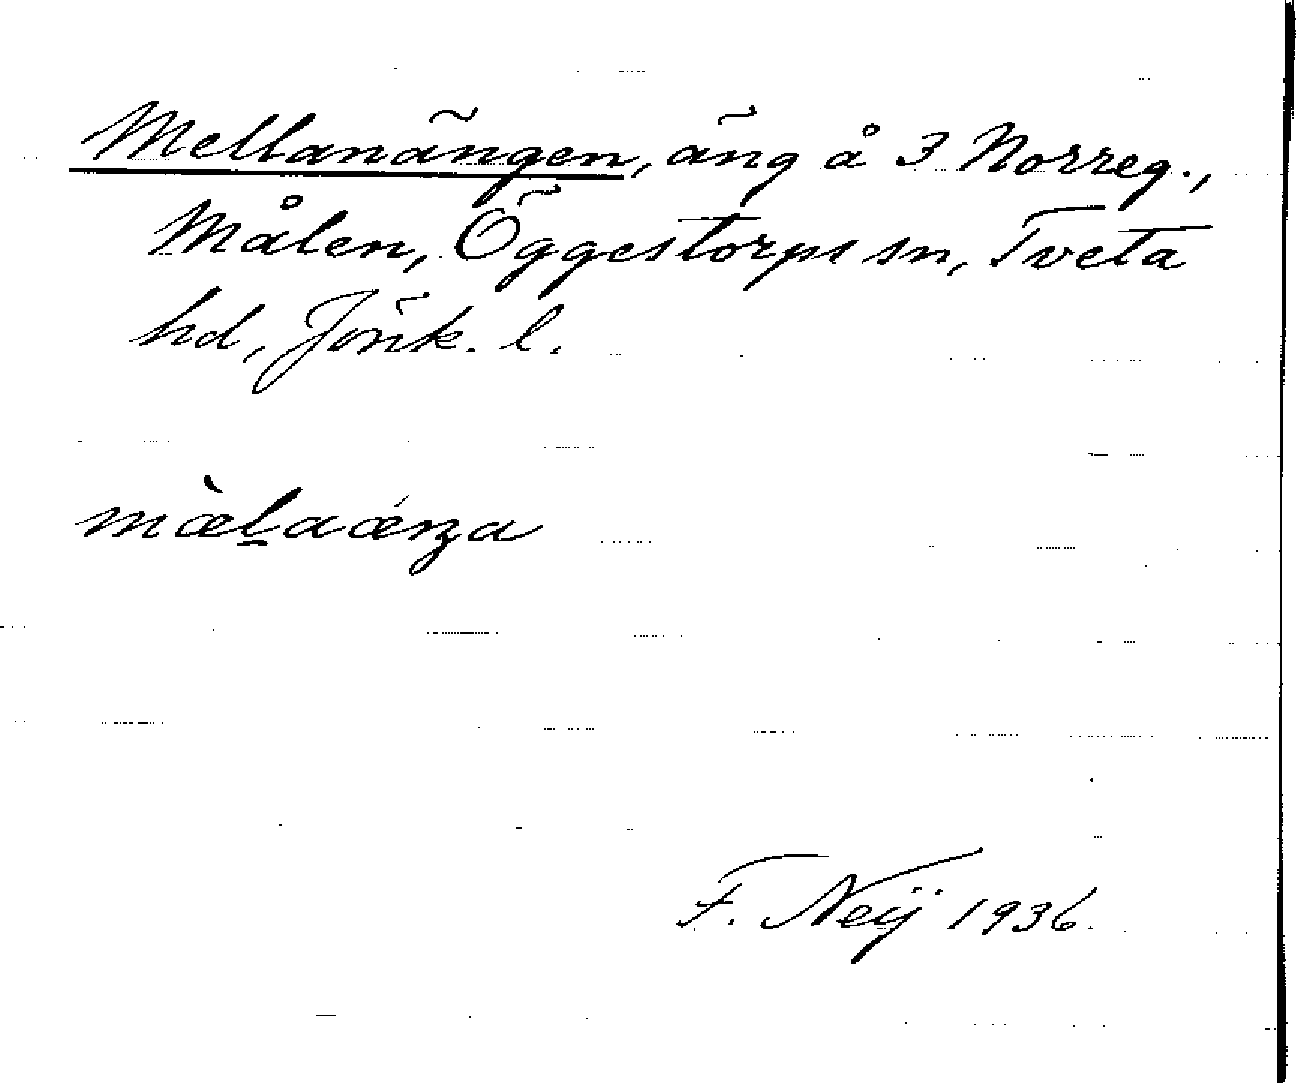 Mellanängen, äng å 3 Norreg.,
Målen, Öggestorps sn, Tveta
hd, Jönk. l.
mæ̀l̠aǽŋa
F. Neij 1936.